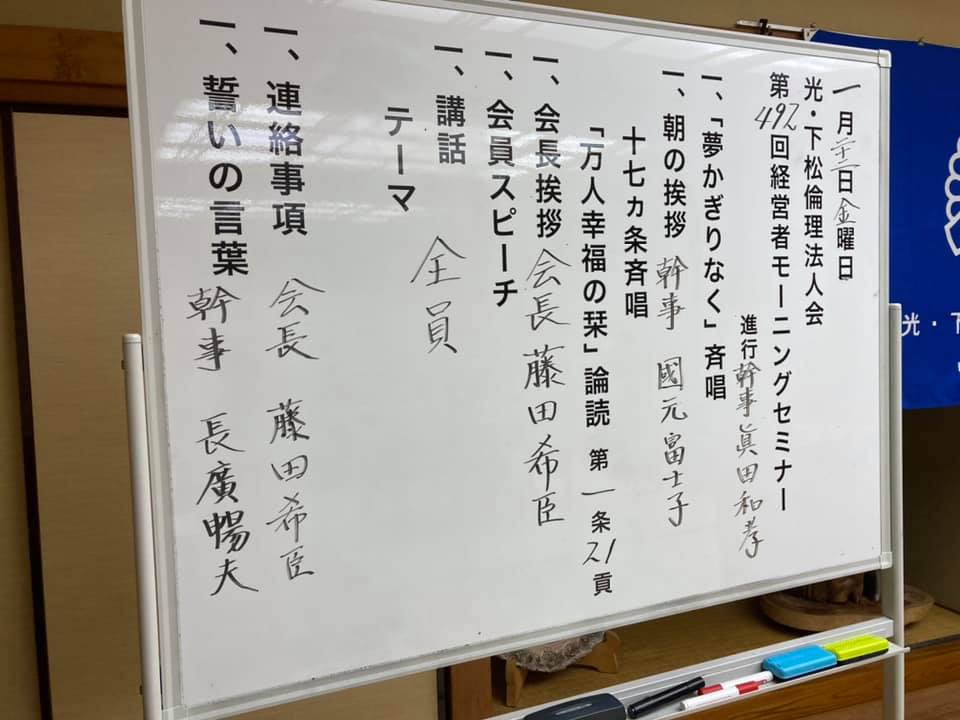 一月日金曜日
光・下松倫理法人会
第492回経営者モーニングセミナー
進行 幹事 眞田和孝
一、「夢かぎりなく」斉唱
一、朝の挨拶 幹事 國元富士子
十七ヵ条斉唱
「万人幸福の栞」論読 第一条21貢
一、会長挨拶 会長 藤田希臣
一、会員スピーチ
一、講話 全員
テーマ
一、連絡事項 会長 藤田希臣
一、誓いの言葉 幹事 長廣暢夫
光・下